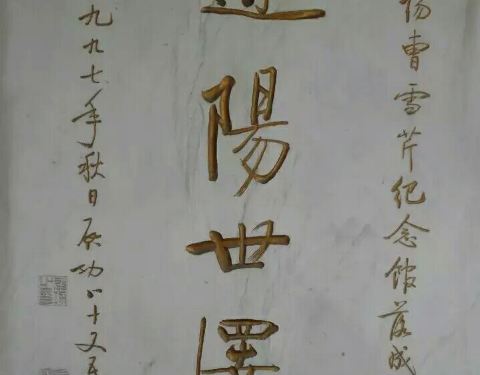 陽曹雪芹紀念館落成
陽世澤
九九七年秋日啟功八十又五